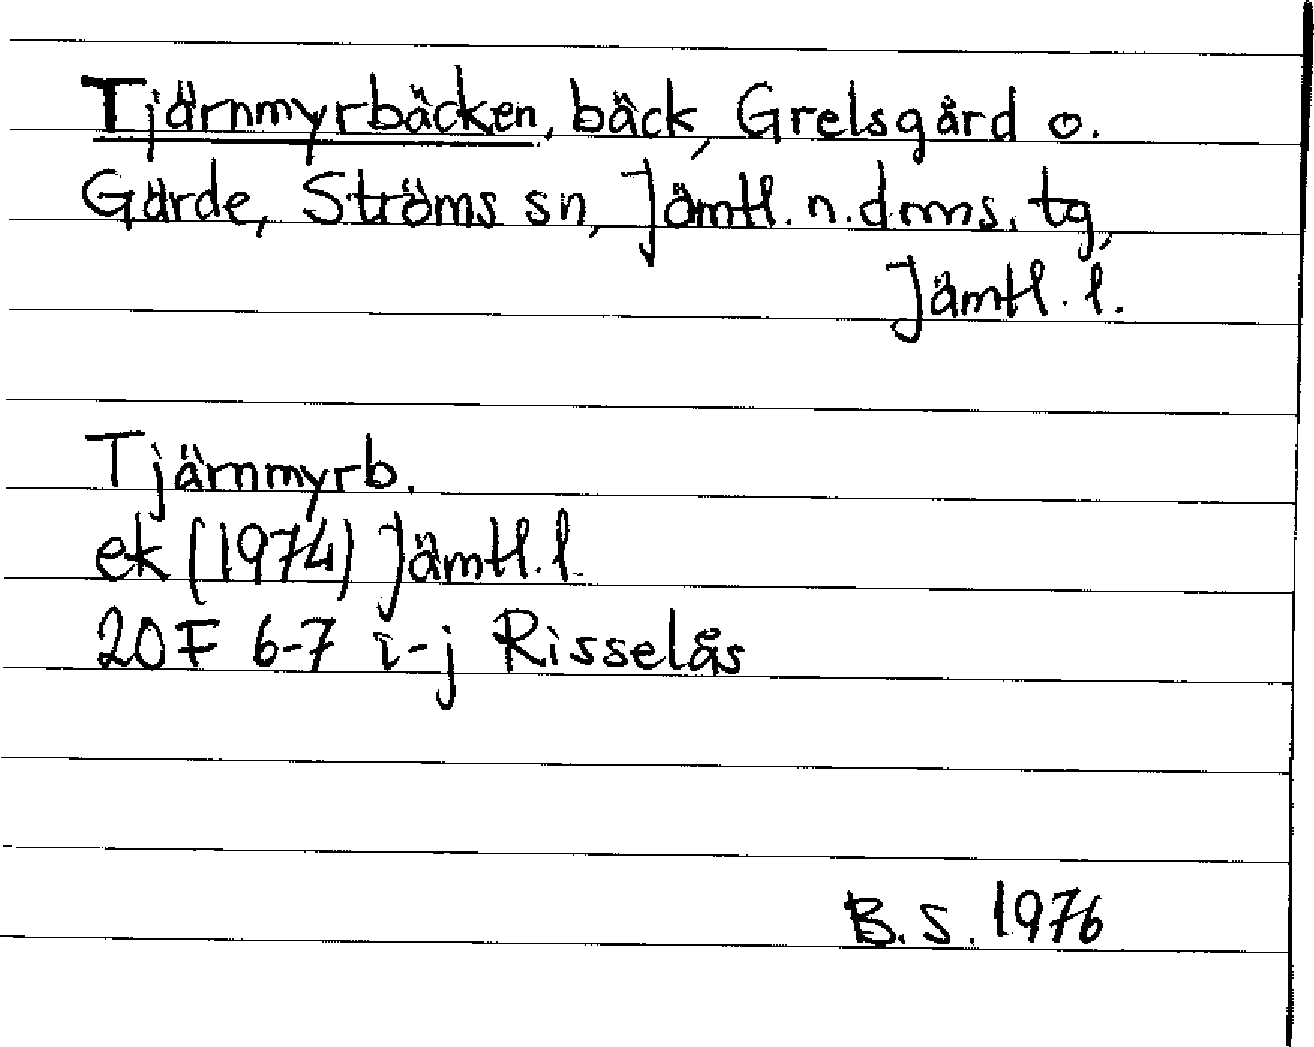 Tjärnmyrbäcken, bäck, Grelsgård o.
Gärde, Ströms sn, Jämtl. n. dms. tg,
Jämtl. l.
Tjärnmyrb.
ek (1974) Jämtl. l.
20F 6-7 i-j Risselås
B.S. 1976